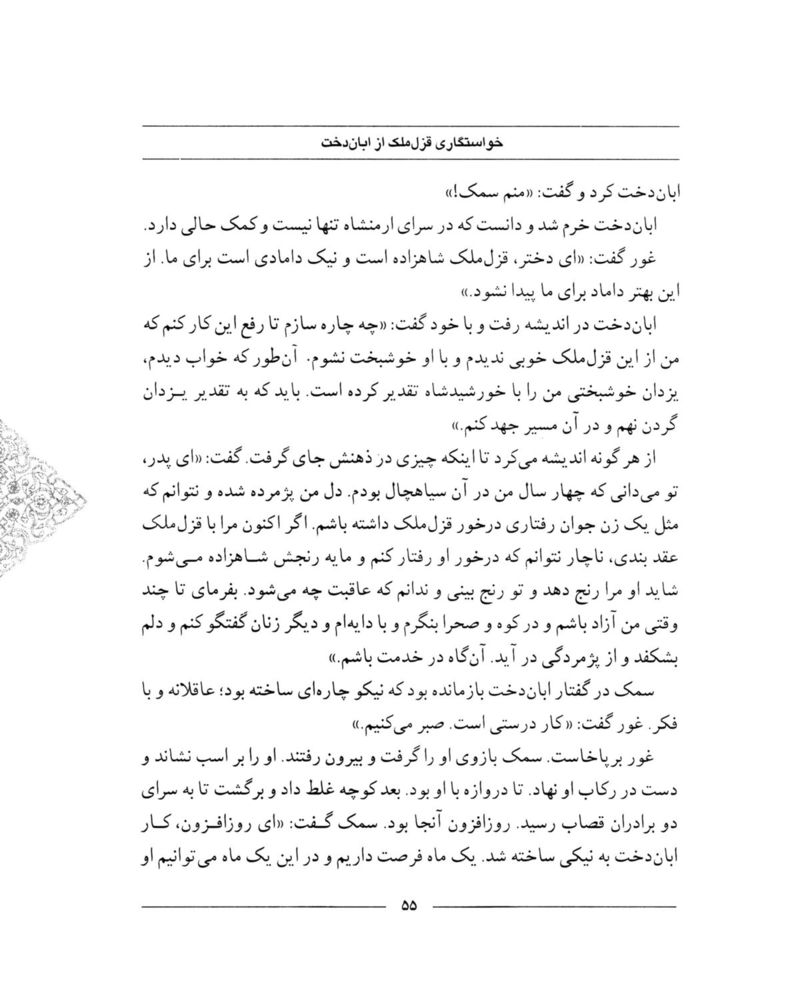 خواستگاری قزل‌ملک از ابان‌دخت
ابان‌دخت کرد و گفت: «منم سمک!»
ابان‌دخت خرم شد و دانست که در سرای ارمنشاه تنها نیست و کمک حالی دارد.
غور گفت: «ای دختر، قزل‌ملک شاهزاده است و نیک دامادی است برای ما. از
این بهتر داماد برای ما پیدا نشود.»
ابان‌دخت در اندیشه رفت و با خود گفت: «چه چاره سازم تا رفع این کار کنم که
من از این قزل‌ملک خوبی ندیدم و با او خوشبخت نشوم. آن‌طور که خواب دیدم،
یزدان خوشبختی من را با خورشیدشاه تقدیر کرده است. باید که به تقدیر یـزدان
گردن نهم و در آن مسیر جهد کنم.»
از هر گونه اندیشه می‌کرد تا اینکه چیزی در ذهنش جای گرفت. گفت: «ای پدر،
تو می‌دانی که چهار سال من در آن سیاهچال بودم. دل من پژمرده شده و نتوانم که
مثل یک زن جوان رفتاری درخور قزل‌ملک داشته باشم. اگر اکنون مرا با قزل‌ملک
عقد بندی، ناچار نتوانم که درخور او رفتار کنم و مایه رنجش شـاهزاده مـی‌شوم.
شاید او مرا رنج دهد و تو رنج بینی و ندانم که عاقبت چه می‌شود. بفرمای تا چند
وقتی من آزاد باشم و در کوه و صحرا بنگرم و با دایه‌ام و دیگر زنان گفتگو کنم و دلم
بشکفد و از پژمردگی در آید. آن‌گاه در خدمت باشم.»
سمک در گفتار ابان‌دخت بازمانده بود که نیکو چاره‌ای ساخته بود؛ عاقلانه و با
فکر. غور گفت: «کار درستی است. صبر می‌کنیم.»
غور برپاخاست. سمک بازوی او را گرفت و بیرون رفتند. او را بر اسب نشاند و
دست در رکاب او نهاد. تا دروازه با او بود. بعد کوچه غلط داد و برگشت تا به سرای
دو برادران قصاب رسید. روزافزون آنجا بود. سمک گـفت: «ای روزافـزون، کـار
ابان‌دخت به نیکی ساخته شد. یک ماه فرصت داریم و در این یک ماه می‌توانیم او
۵۵